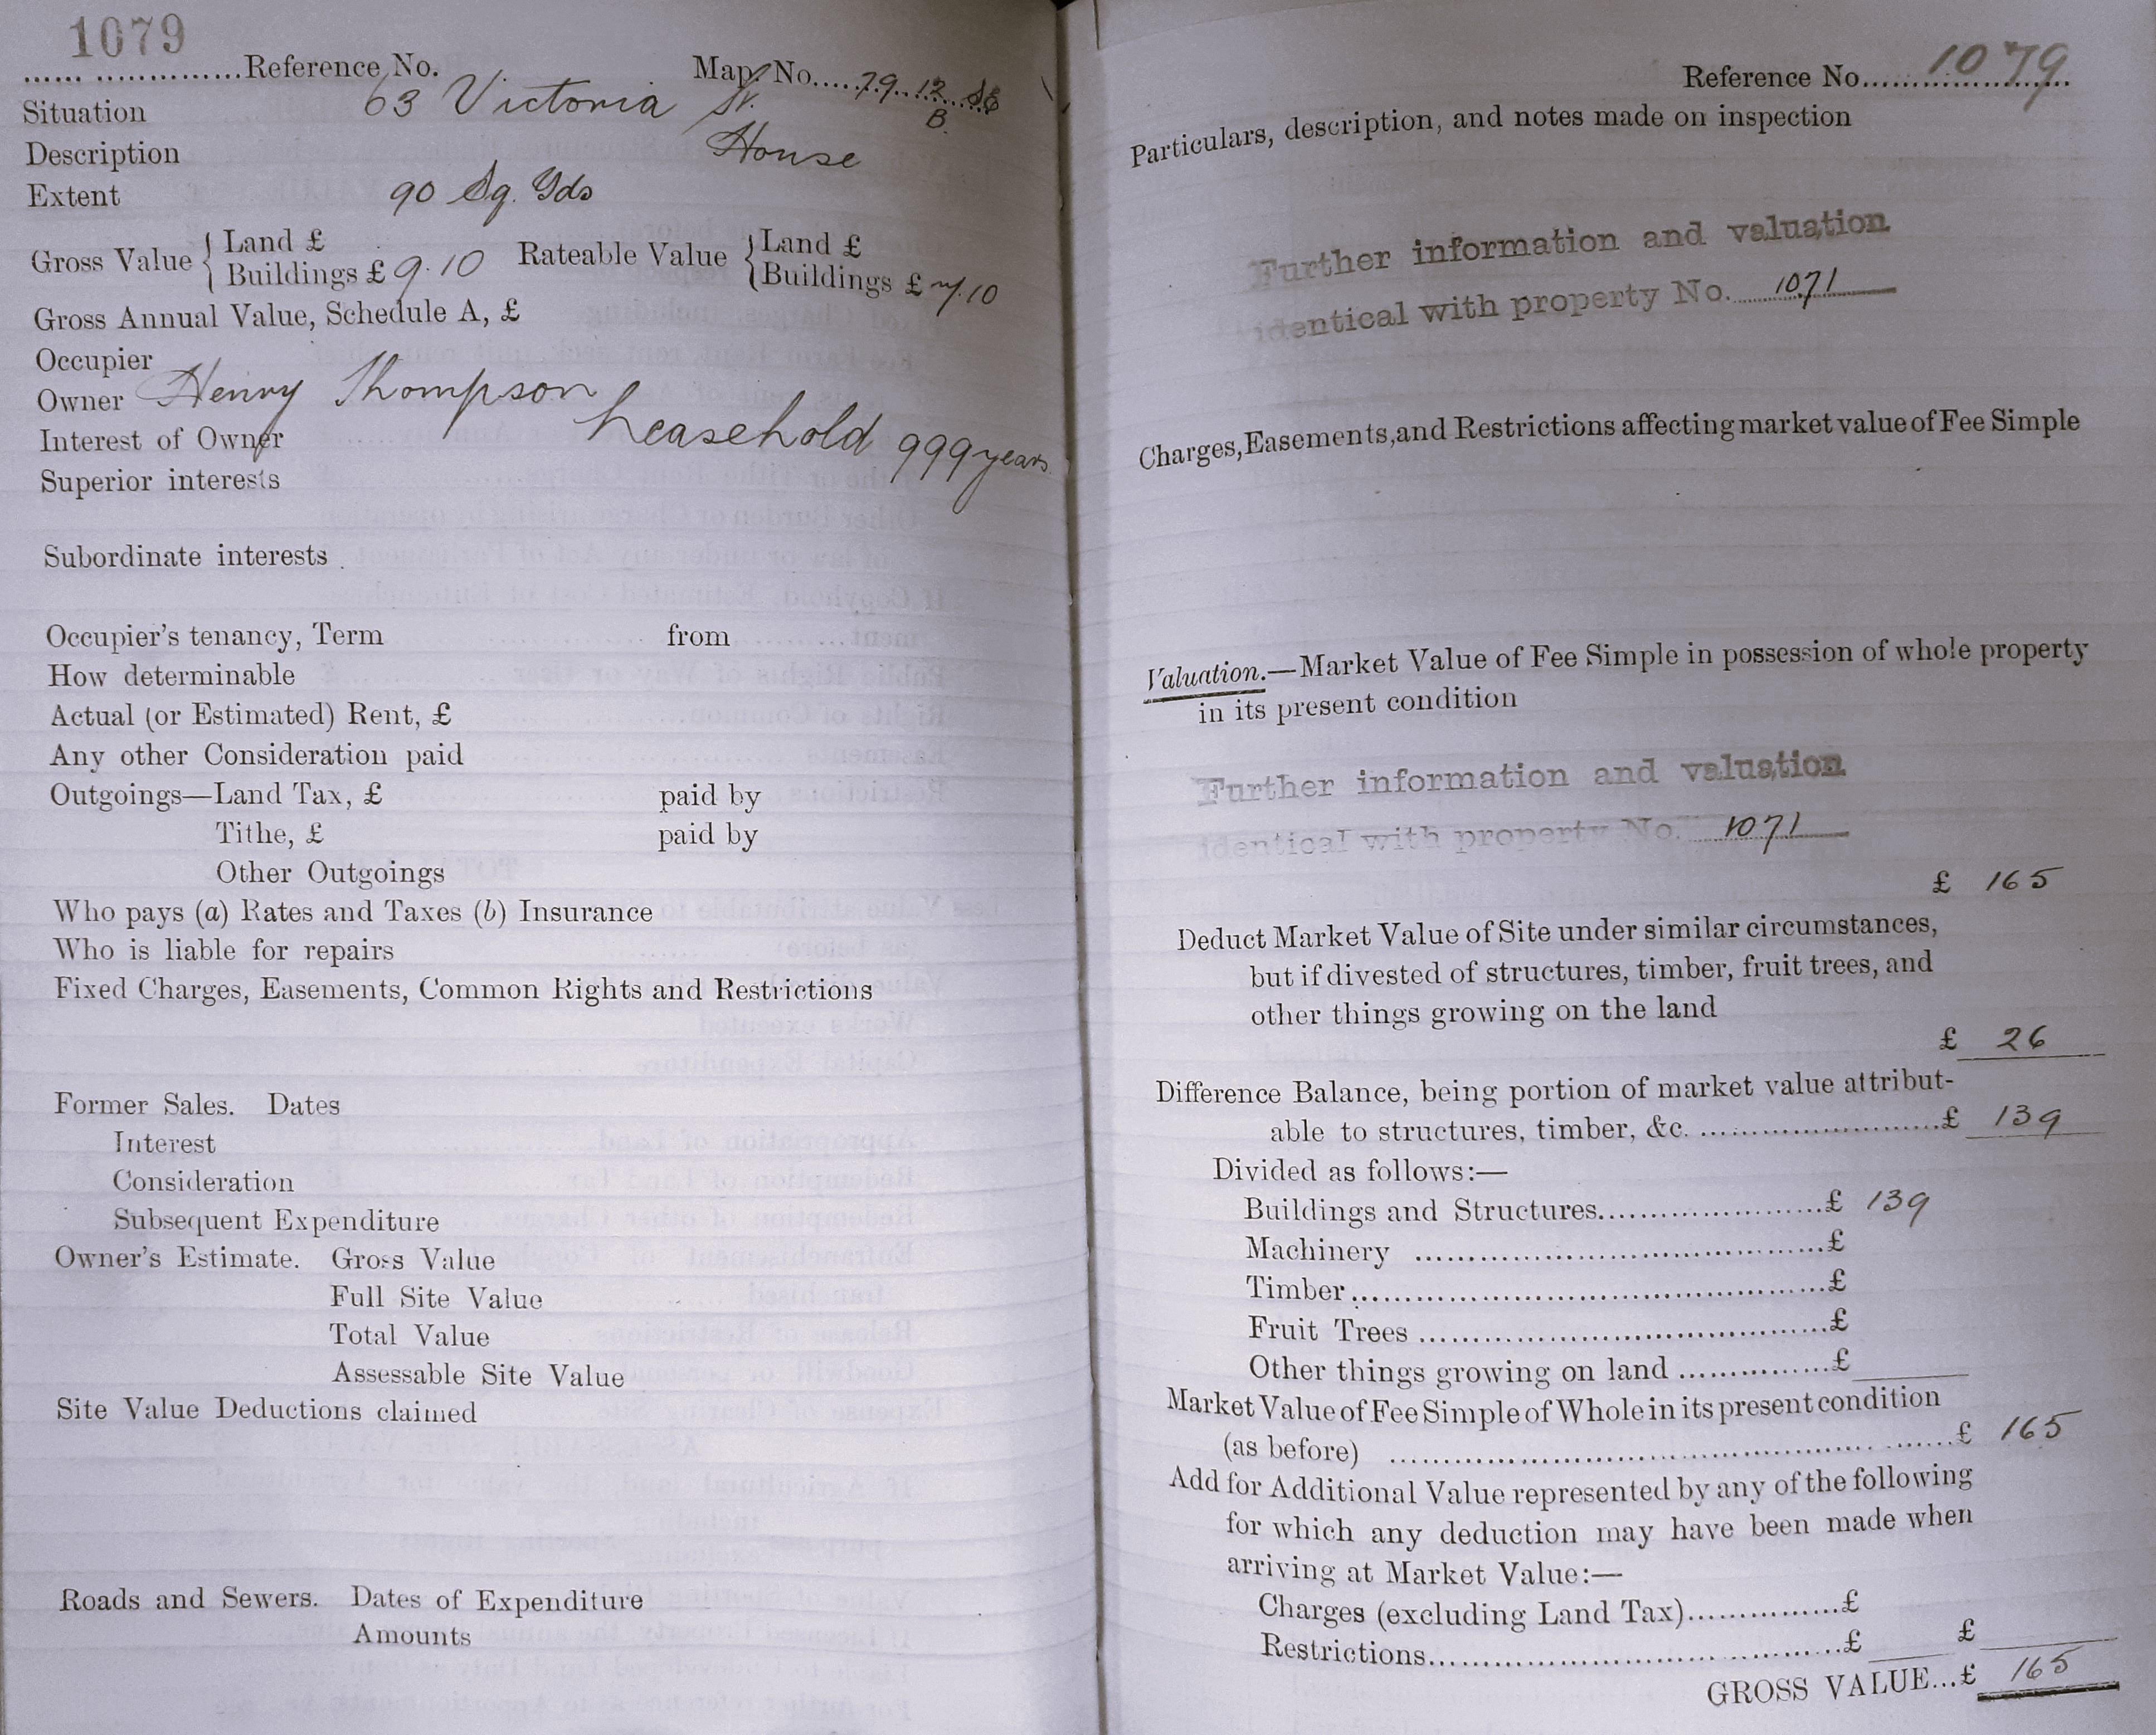 1079
Reference No. Map. No. 79. 12 SE
B.
Situation 63 Victoria St.
Description House
Extent 90 Sq. Yds
Gross Value { Land £ Rateable Value { Land £
Buildings £ 9.10 Buildings £ 7.10
Gross Annual Value, Schedule A, £
Occupier
Owner Henry Thompson
Interest of Owner Leasehold 999 years
Superior interests
Subordinate interests
Occupier's tenancy, Term from
How determinable
Actual (or Estimated) Rent, £
Any other Consideration paid
Outgoings—Land Tax, £ paid by
Tithe, £ paid by
Other Outgoings
Who pays (a) Rates and Taxes (b) Insurance
Who is liable for repairs
Fixed Charges, Easements, Common Rights and Restrictions
Former Sales. Dates
Interest
Consideration
Subsequent Expenditure
Owner's Estimate. Gross Value
Full Site Value
Total Value
Assessable Site Value
Site Value Deductions claimed
Roads and Sewers. Dates of Expenditure
Amounts
Reference No. 1079
Particulars, description, and notes made on inspection
Further information and valuation
identical with property No. 1071
Charges, Easements, and Restrictions affecting market value of Fee Simple
Valuation.—Market Value of Fee Simple in possession of whole property
in its present condition
Further information and valuation
identical with property No. 1071
£ 165
Deduct Market Value of Site under similar circumstances,
but if divested of structures, timber, fruit trees, and
other things growing on the land
£ 26
Difference Balance, being portion of market value attribut-
able to structures, timber, &c. £ 139
Divided as follows:—
Buildings and Structures £ 139
Machinery £
Timber £
Fruit Trees £
Other things growing on land £
Market Value of Fee Simple of Whole in its present condition
(as before) £ 165
Add for Additional Value represented by any of the following
for which any deduction may have been made when
arriving at Market Value:—
Charges (excluding Land Tax) £
Restrictions £ £
GROSS VALUE...£ 165